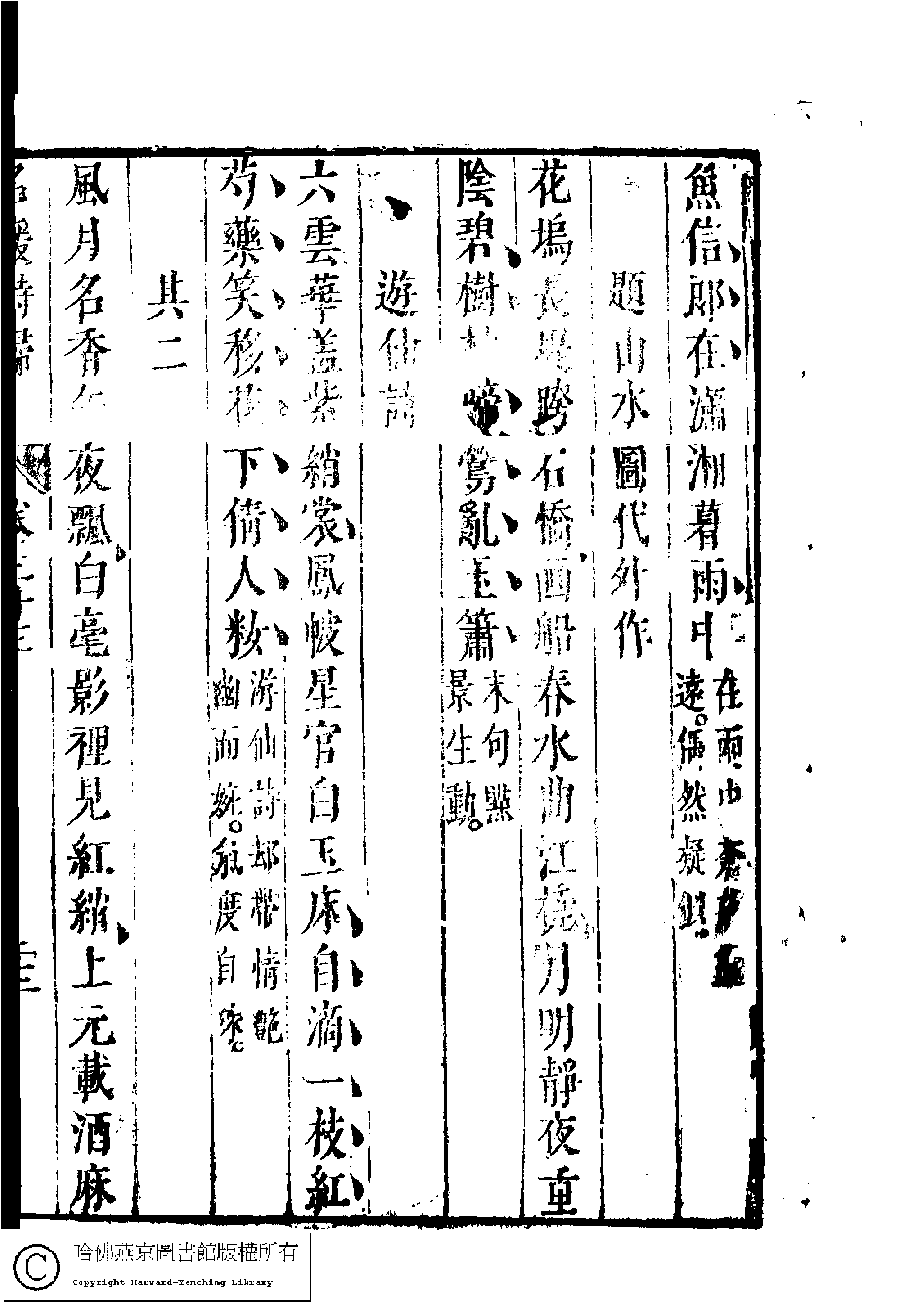 魚信郎在瀟湘暮雨中
在雨中
遠。偶然凝
題山水圖代外作
花塢長堤跨石橋画船春水曲江橈月明靜夜重
陰碧樹啼鶯亂玉簫
末句點
景生動。
遊仙詩
六雲華盖紫綃裳鳳帔星官白玉床自滴一枝紅
芍藥笑移花下倩人妝
游仙詩却帶情艶
幽而婉。風度自
其二
風月名香午夜飄白毫影裡見紅綃上元載酒麻
名媛詩歸
卷二十三
三
哈佛燕京圖書館版權所有
Copyright Harvard-Yenching Library